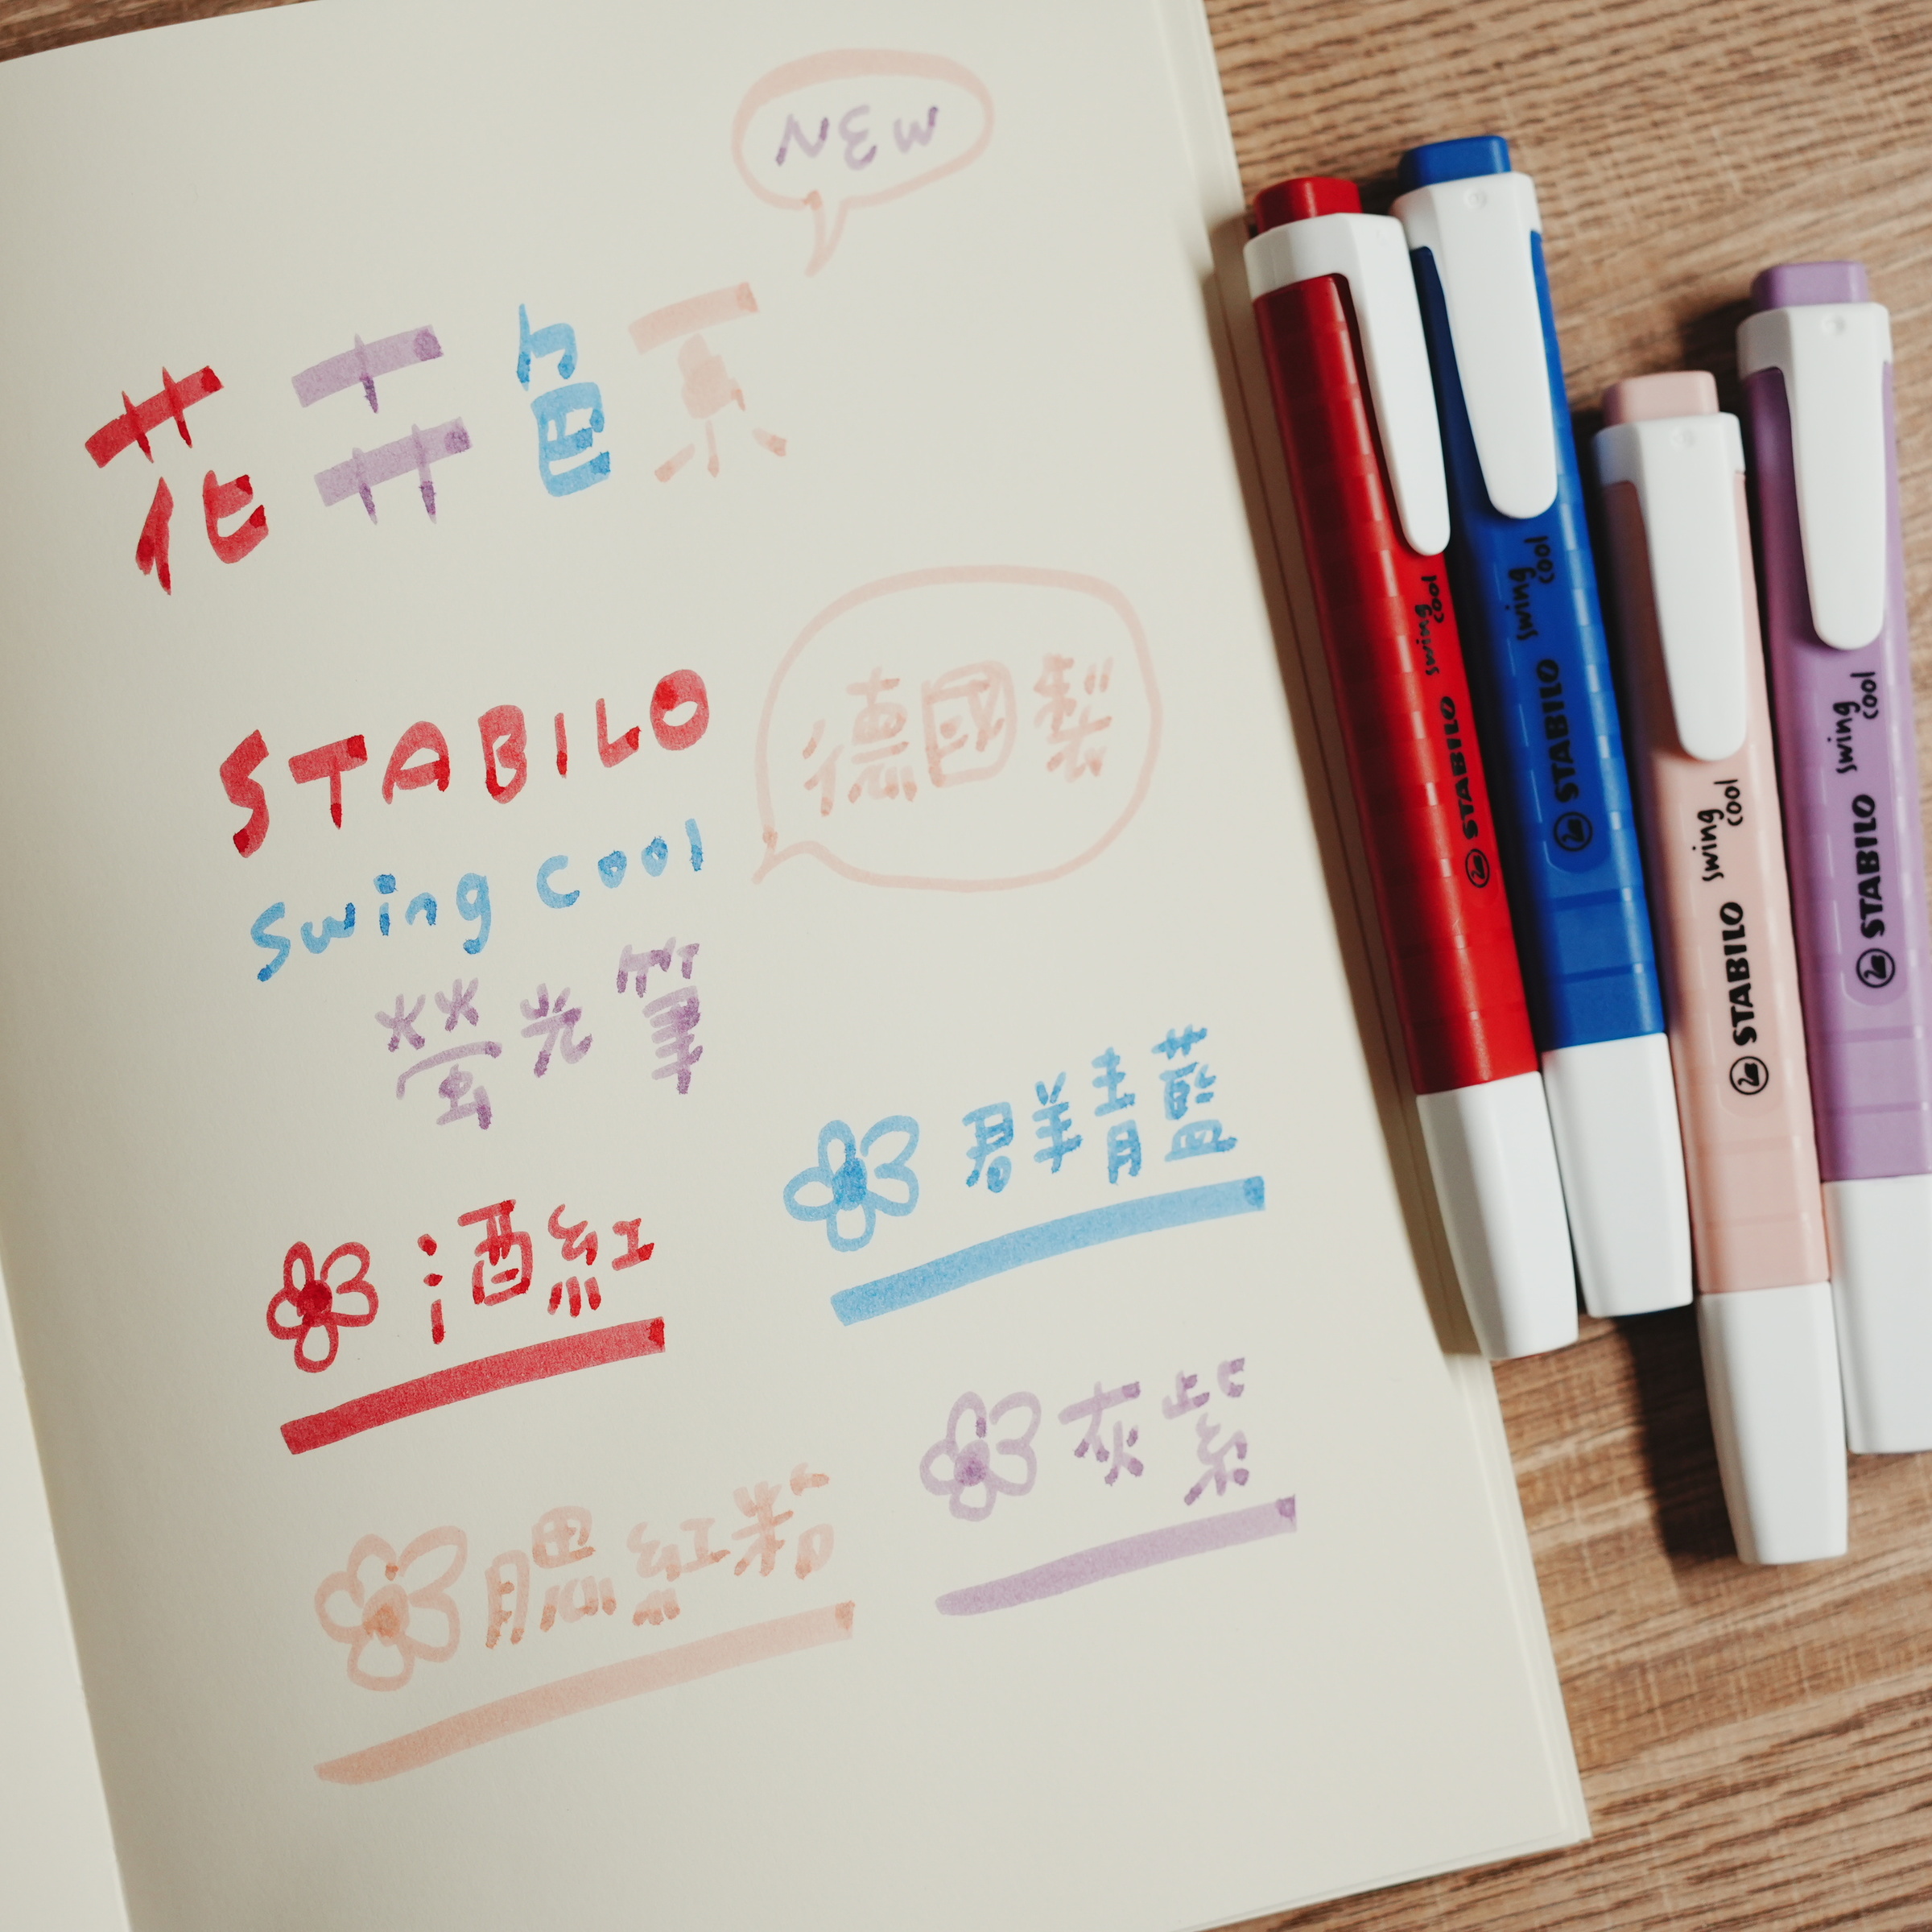 NEW
花卉色系
STABILO
swing cool
螢光筆
德國製
群青藍
酒紅
灰紫
腮紅粉
STABILO swing cool
STABILO swing cool
STABILO swing cool
STABILO swing cool